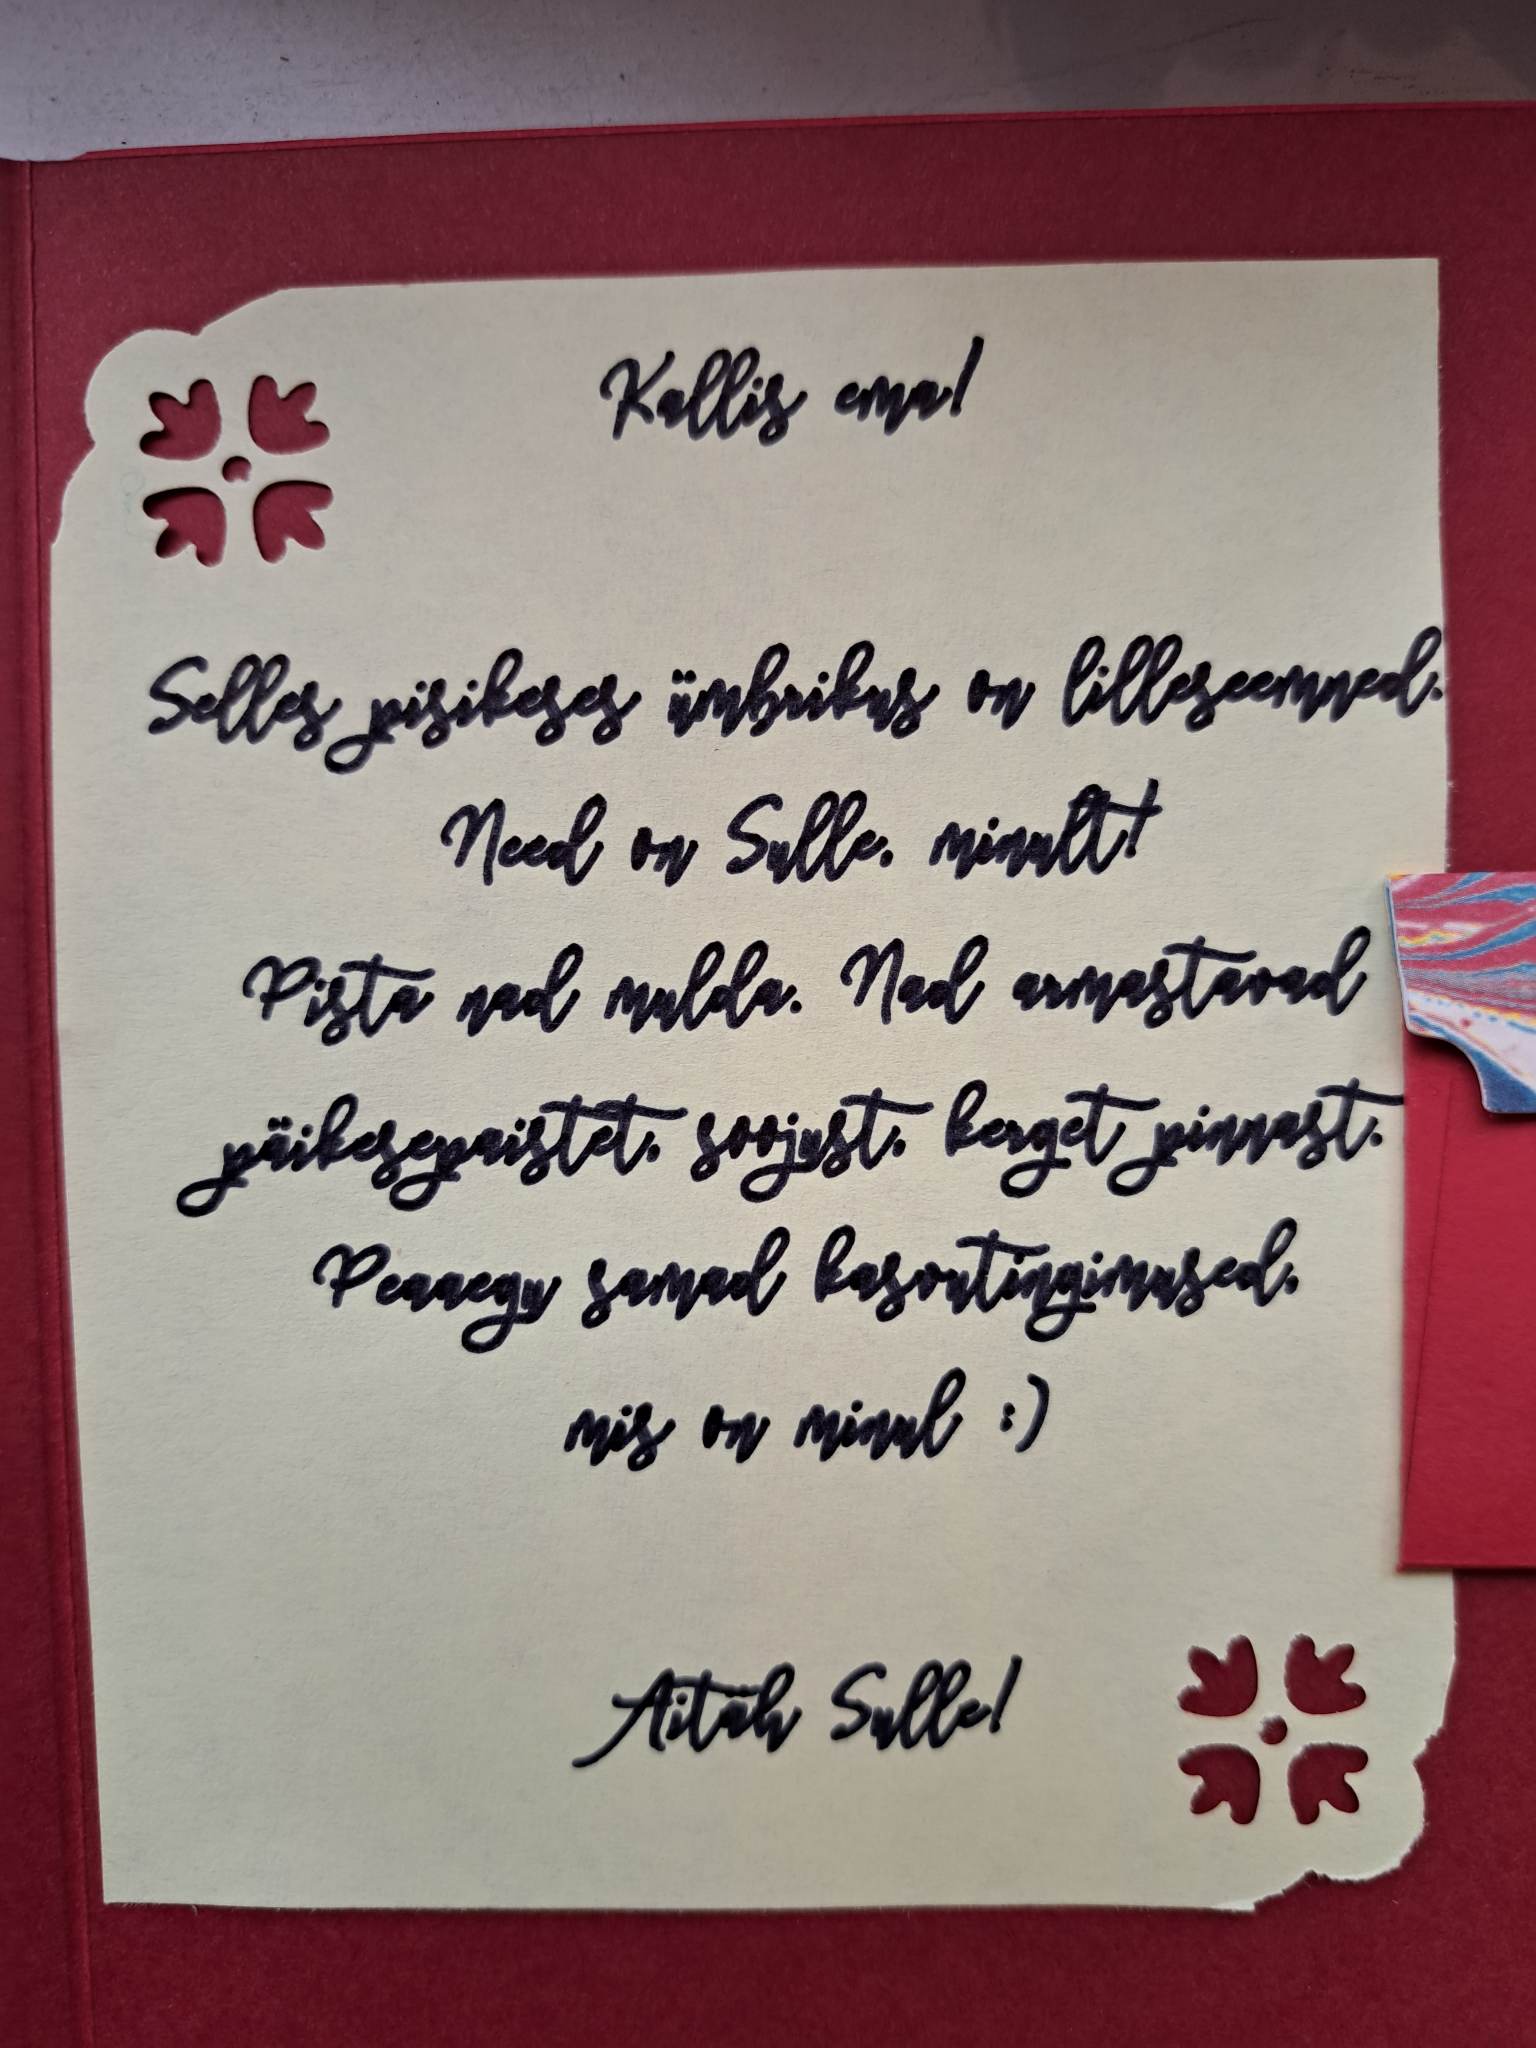 Kallis ema!
Selles pisikeses ümbrikus on lilleseemned.
Need on Sulle, minult!
Pista nad mulda. Nad armastavad
päikesepaistet, soojust, kerget pinnast.
Peaaegu samad kasvutingimused,
mis on minul :)
Aitäh Sulle!